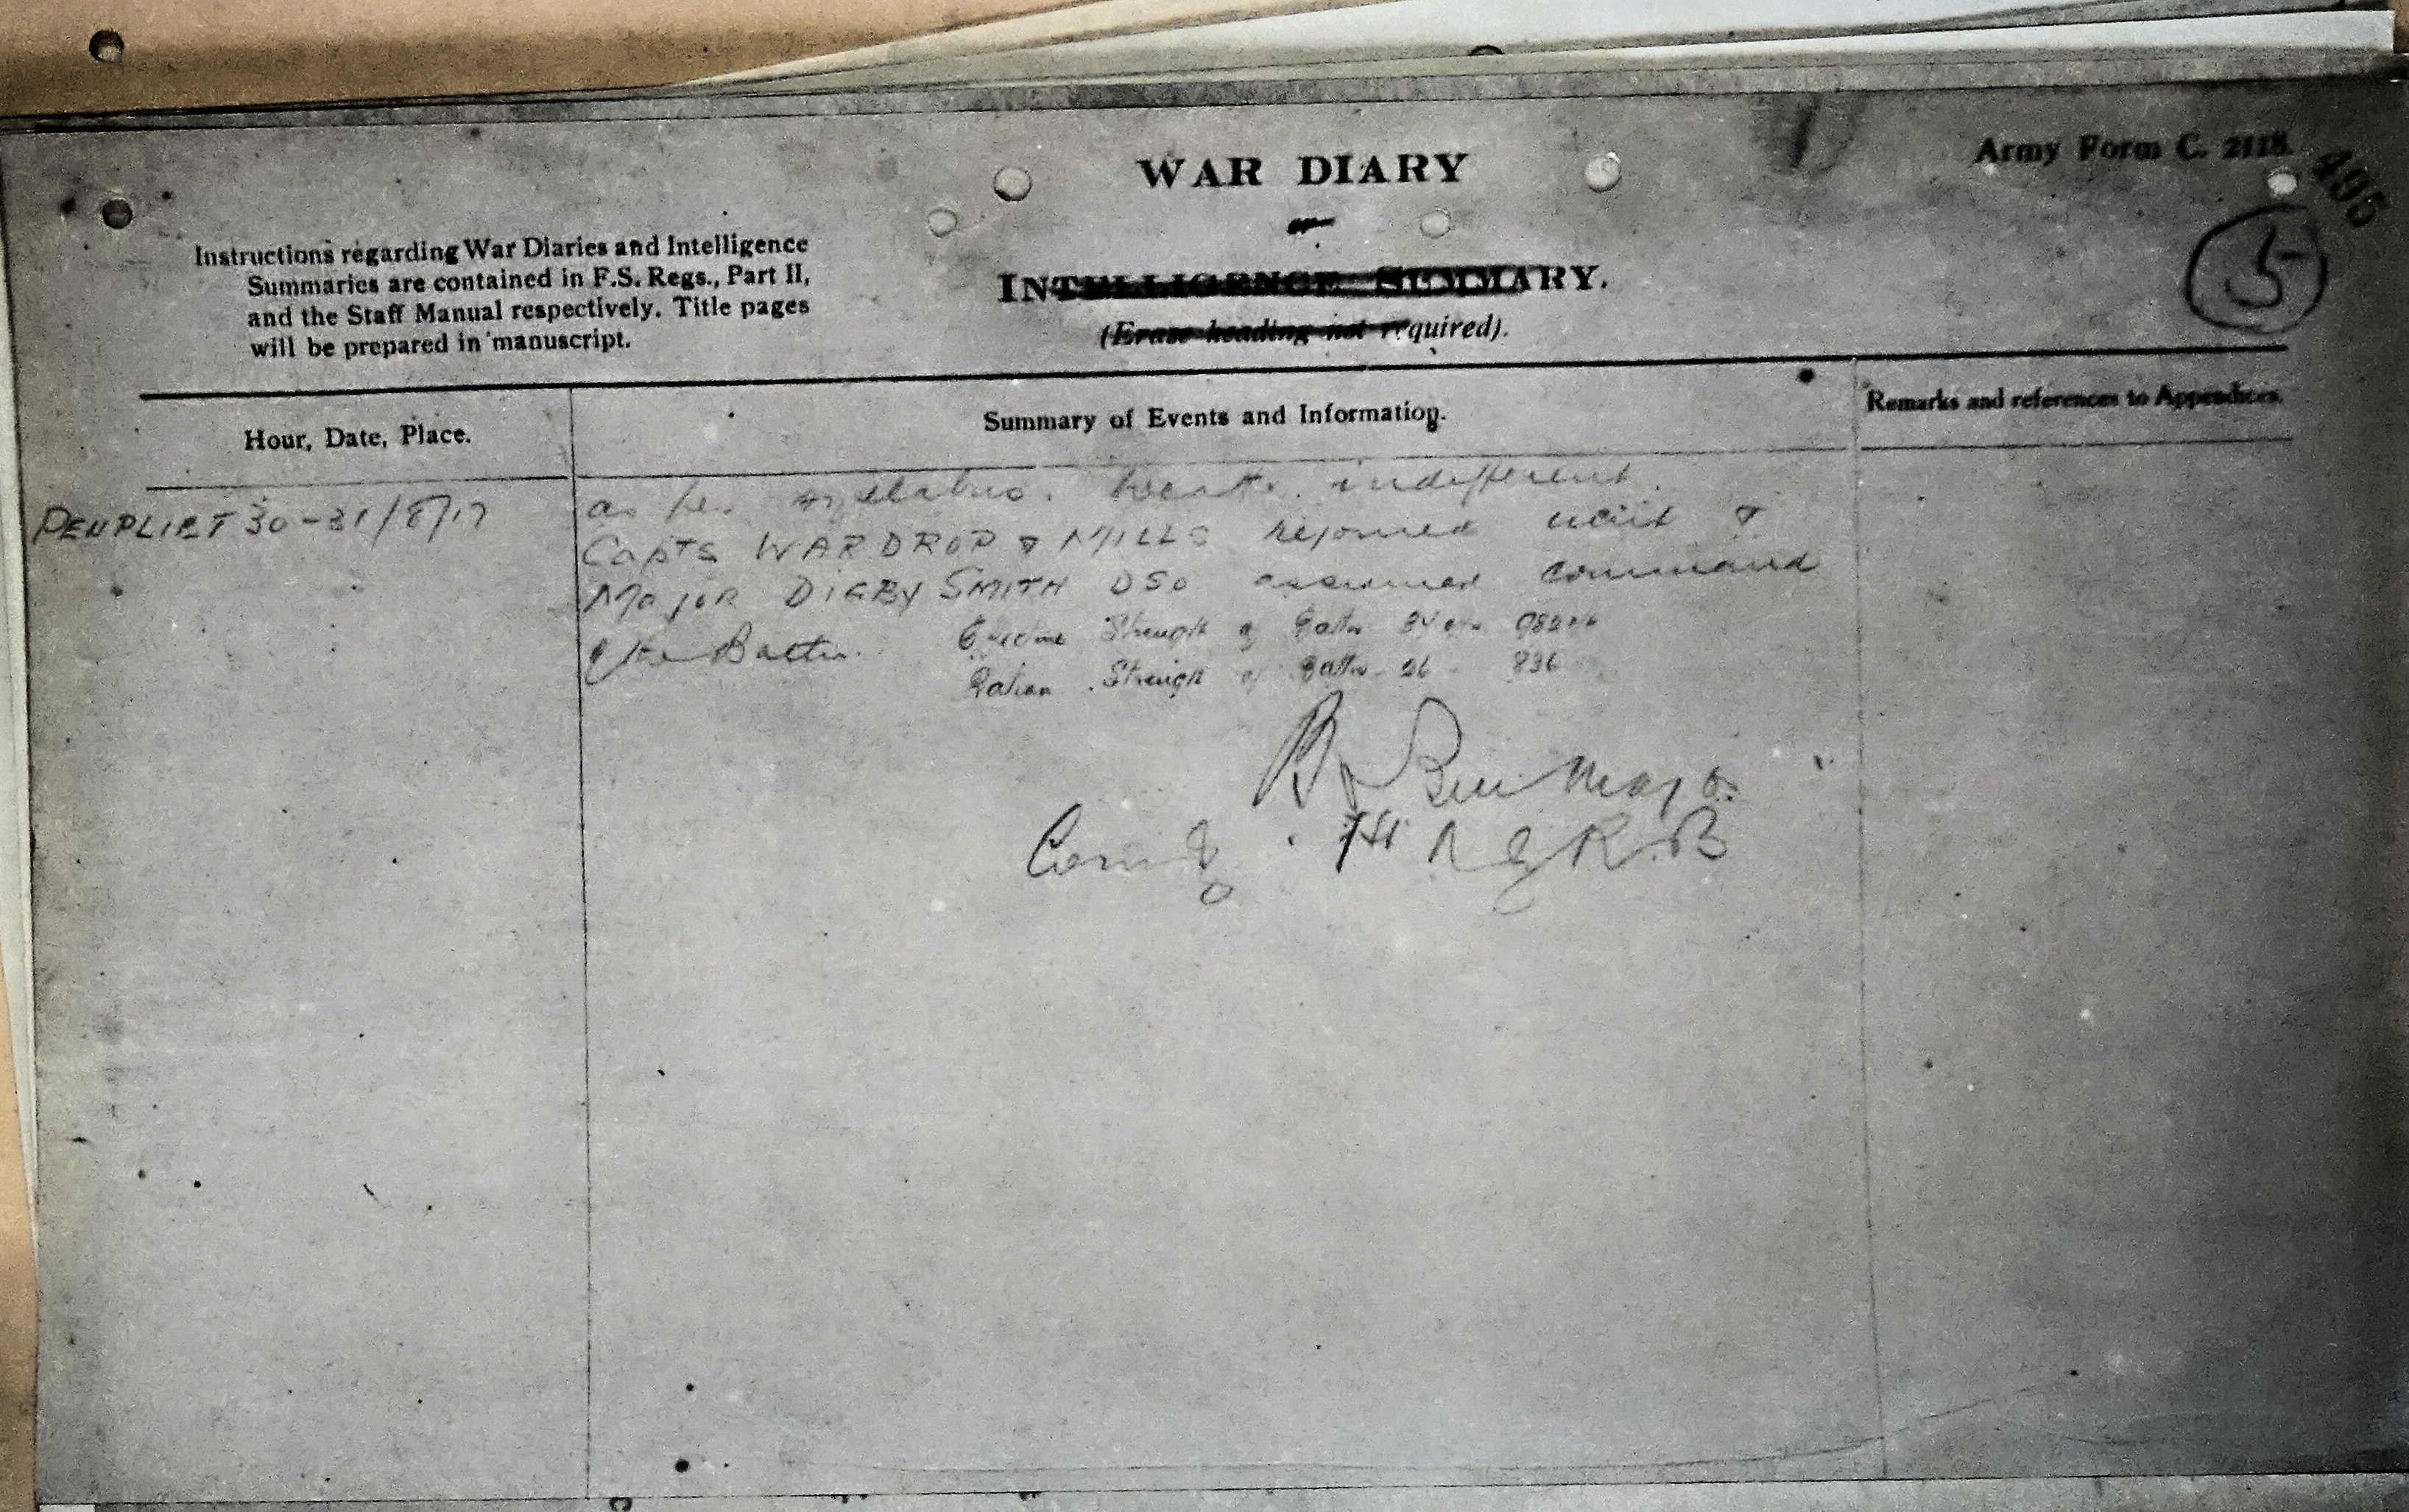 Army Form C. 2118.
495
5
WAR DIARY
or
INTELLIGENCE SUMMARY.
(Erase heading not required).
Instructions regarding War Diaries and Intelligence
Summaries are contained in F.S. Regs., Part II,
and the Staff Manual respectively. Title pages
will be prepared in manuscript.
Hour, Date, Place.
Summary of Events and Information.
Remarks and references to Appendices.
30-31/8/17
as per syllabus. indifferent.
Capts WARDROP & MILLS rejoined unit &
Major DIGBY SMITH DSO assumed command
of the Battn.
Strength of Battn 34
Ration Strength of Battn 26 836
Major
Comdg